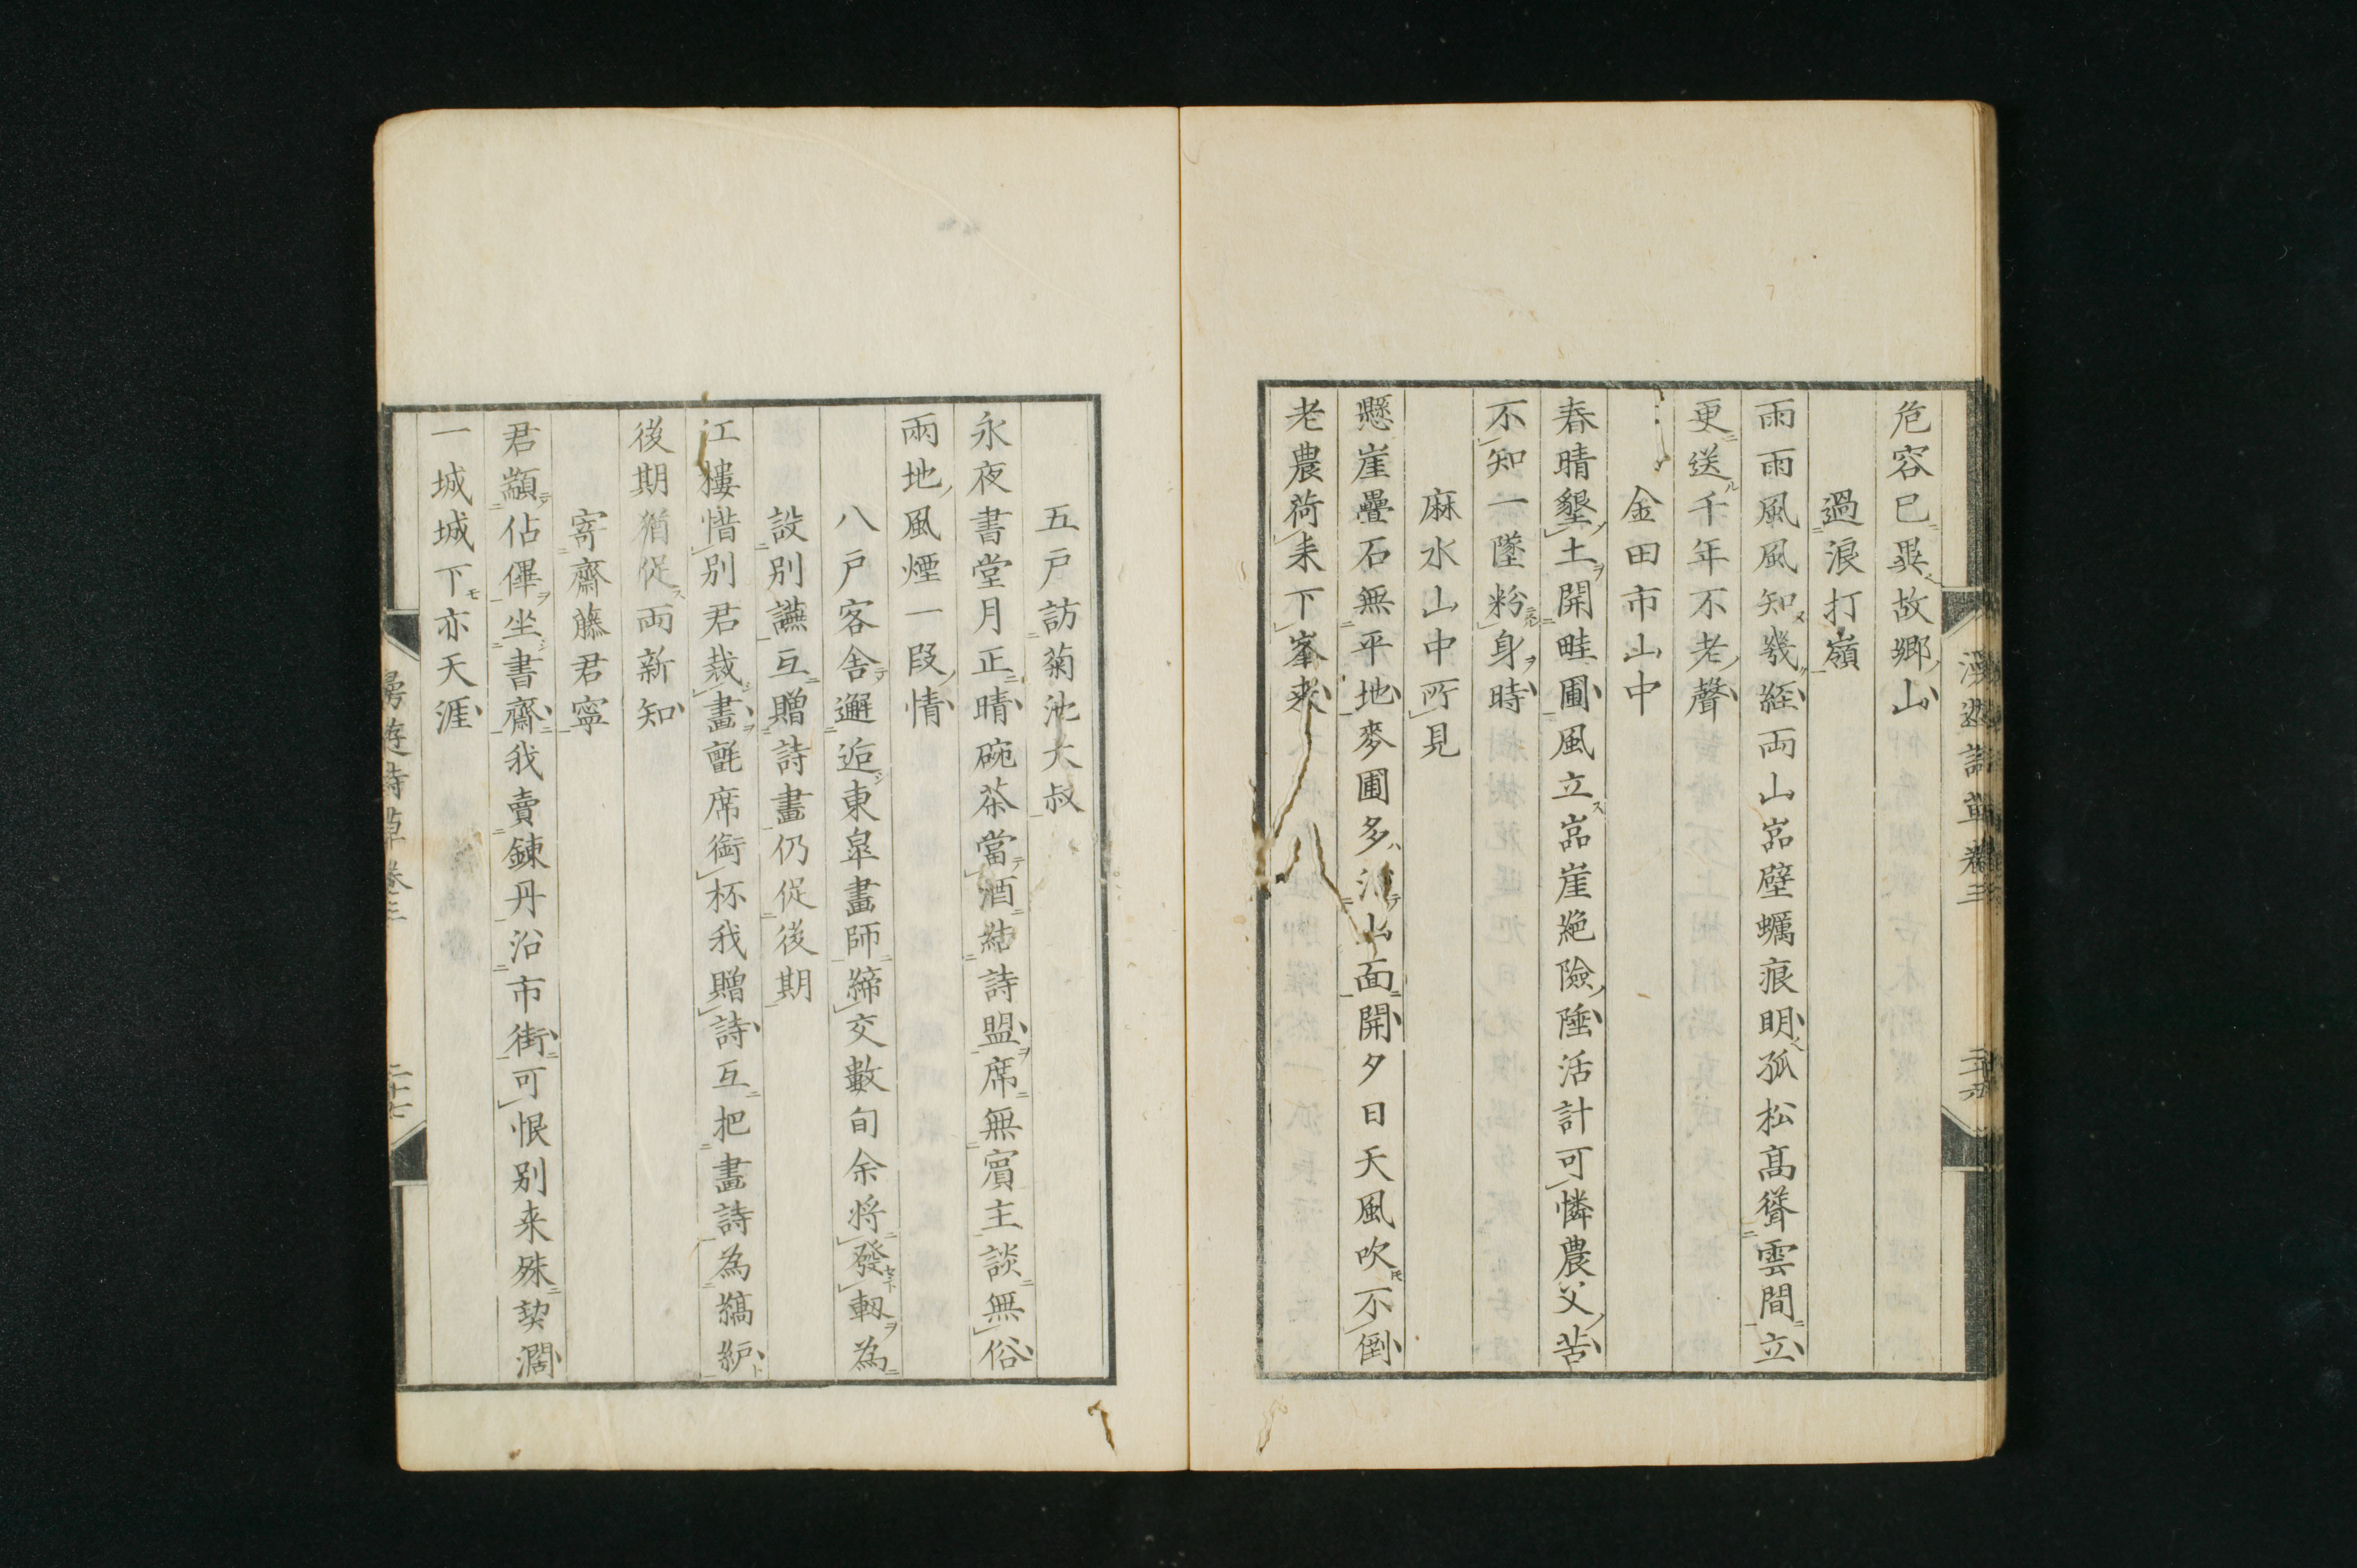 危容已異故郷山
過浪打嶺
雨雨風風知幾經両山嵓壁蠣痕明孤松髙聳雲間立
更送千年不老聲
金田市山中
春晴墾土開畦圃風立嵓崖絶險陲活計可憐農父苦
不知一墜粉身時
麻水山中所見
懸崖疊石無平地麥圃多 山面開夕日天風吹不倒
老農荷耒下峯来
五戸訪菊池大叔
永夜書堂月正晴碗茶當酒結詩盟席無賓主談無俗
兩地風煙一段情
八戸客舎邂逅東皐畫師締交數旬余将發軔為
設別讌互贈詩畫仍促後期
江樓惜別君裁畫氈席銜杯我贈詩互把畫詩為縞紵
後期猶促両新知
寄齋藤君寧
君顓佔俾坐書齋我賣錬丹沿市街可恨別来殊契濶
一城城下亦天涯
漫遊詩草卷三
二十七